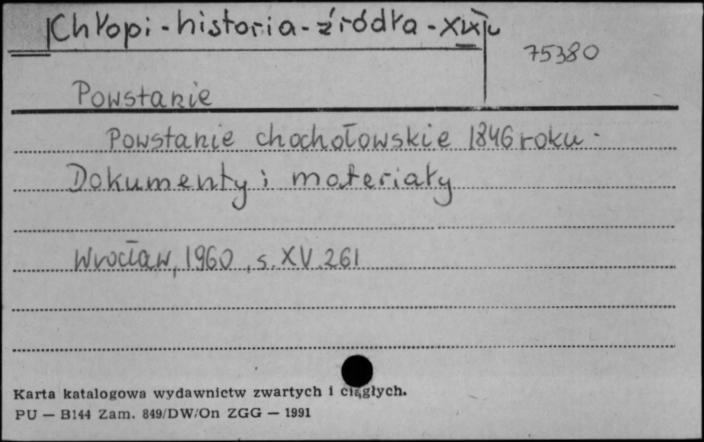 Chłopi - historia - źródła - XIX w
75380
Powstanie
Powstanie chochołowskie 1846 roku.
Dokumenty i materiały
Wrocław, 1960, s. XV. 261
Karta katalogowa wydawnictw zwartych i ciągłych.
PU — B144 Zam. 849/DW/On ZGG — 1991